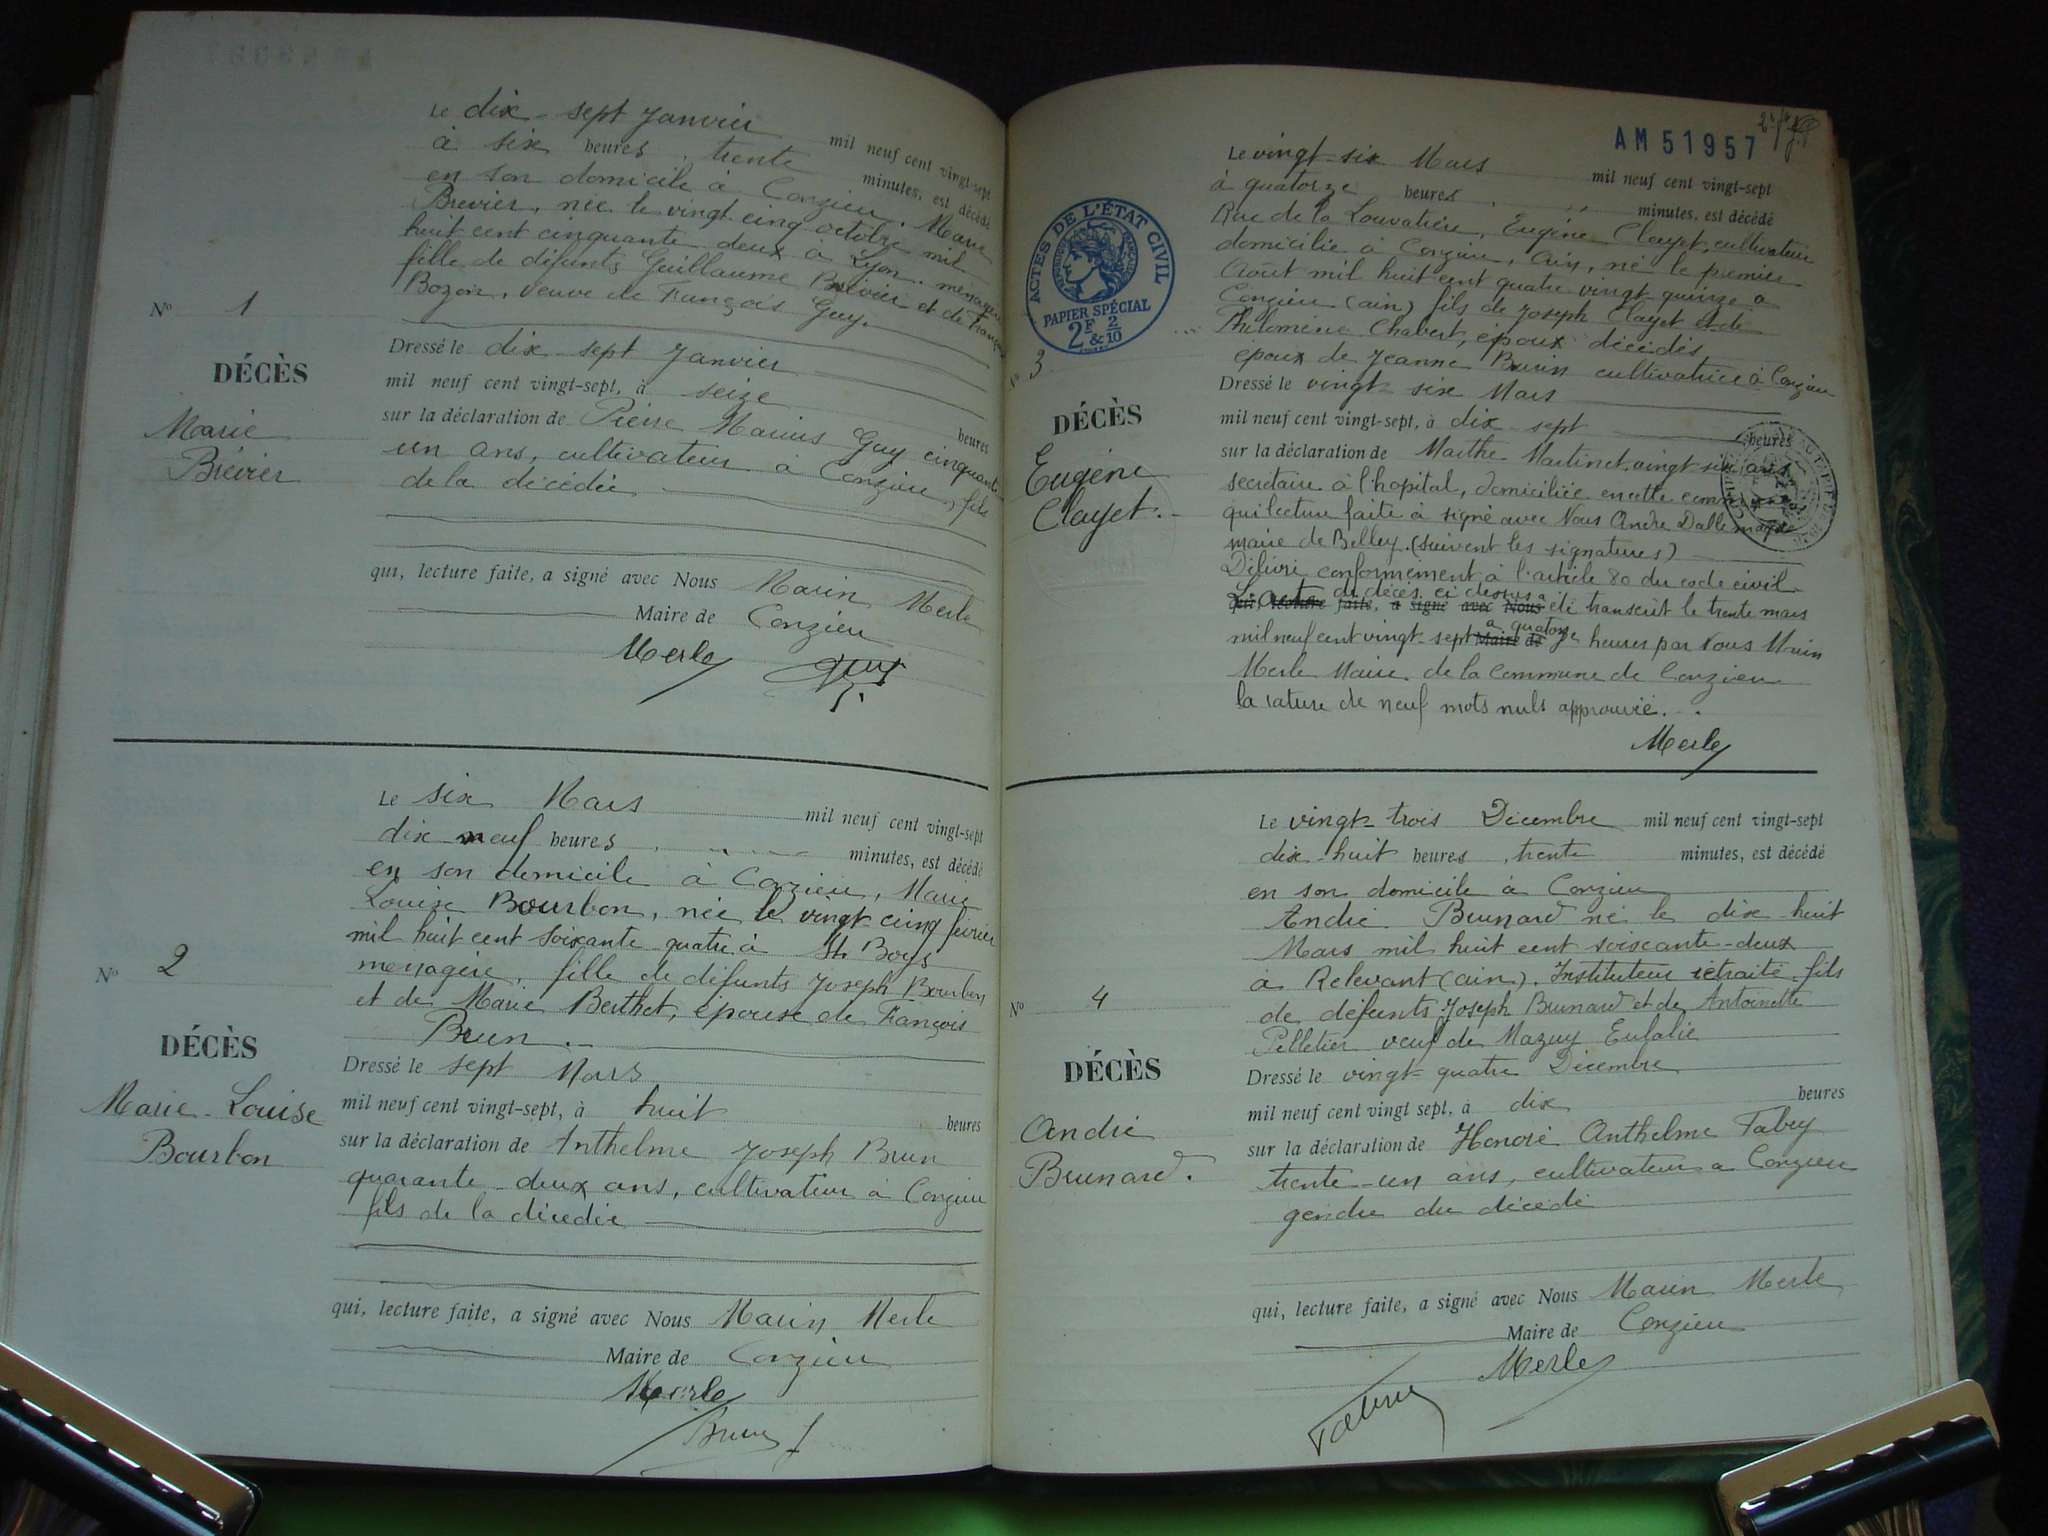 Le dix-sept Janvier mil neuf cent vingt-sept
à six heures, trente minutes, est décédé
en son domicile à Conzieu, Marie
Brévier, née le vingt cinq octobre mil
huit cent cinquante deux à Lyon, ménagère
fille de défunts Guillaume Brévier et de
Bozon, veuve de François Guy.
N° 1
DÉCÈS
Marie
Brévier
Dressé le dix-sept Janvier
mil neuf cent vingt-sept, à seize heures
sur la déclaration de Pierre Marius Guy cinquante
un ans, cultivateur à Conzieu, fils
de la décédée
qui, lecture faite, a signé avec Nous Marin Merle
Maire de Conzieu
Merle Guy
Le six Mars mil neuf cent vingt-sept
dix-neuf heures, minutes, est décédé
en son domicile à Conzieu, Marie
Louise Bourbon, née le vingt-cinq février
mil huit cent soixante quatre à St Boys
menagère, fille de défunts Joseph Bourbon
et de Marie Berthet, épouse de François
Brun.
N° 2
DÉCÈS
Marie-Louise
Bourbon
Dressé le sept Mars
mil neuf cent vingt-sept, à huit heures
sur la déclaration de Anthelme Joseph Brun
quarante-deux ans, cultivateur à Conzieu
fils de la décédée
qui, lecture faite, a signé avec Nous Marin Merle
Maire de Conzieu
Merle
Brun J
AM 51957
Le vingt-six Mars mil neuf cent vingt-sept
à quatorze heures, minutes, est décédé
Rue de la Louvatière, Eugène Clayet, cultivateur
domicilié à Conzieu, Ain, né le premier
Août mil huit cent quatre vingt quinze à
Conzieu (ain) fils de Joseph Clayet et de
Philomène Chabert, époux décédés
époux de Jeanne Burin cultivatrice à Conzieu
ACTES DE L'ÉTAT CIVIL
PAPIER SPÉCIAL
2F & 2/10
N° 3
DÉCÈS
Eugène
Clayet.
Dressé le vingt-six Mars
mil neuf cent vingt-sept, à dix-sept heures
sur la déclaration de Marthe Martinet, vingt six ans
secrétaire à l'hopital, domiciliée en cette commune
qui lecture faite a signé avec Nous André Dallemagne
maire de Belley. (suivent les signatures)
Délivré conformément à l'article 80 du code civil
L'acte de décès ci dessus a
qui, lecture faite, a signé avec Nous été transcrit le trente mars
mil neuf cent vingt-sept Maire de à quatorze heures par Nous Marin
Merle Maire de la commune de Conzieu
la rature de neuf mots nuls approuvée.
Merle
Le vingt-trois Décembre mil neuf cent vingt-sept
dix-huit heures, trente minutes, est décédé
en son domicile à Conzieu
André Brunard né le dix-huit
Mars mil huit cent soixante-deux
à Relevant (ain). Instituteur retraité fils
de défunts Joseph Brunard et de Antoinette
Pelletier veuf de Mazuy Eulalie
N° 4
DÉCÈS
André
Brunard.
Dressé le vingt-quatre Décembre
mil neuf cent vingt sept, à dix heures
sur la déclaration de Honoré Anthelme Fabry
trente-un ans, cultivateur à Conzieu
gendre du décédé
qui, lecture faite, a signé avec Nous Marin Merle
Maire de Conzieu
Merle
Fabry